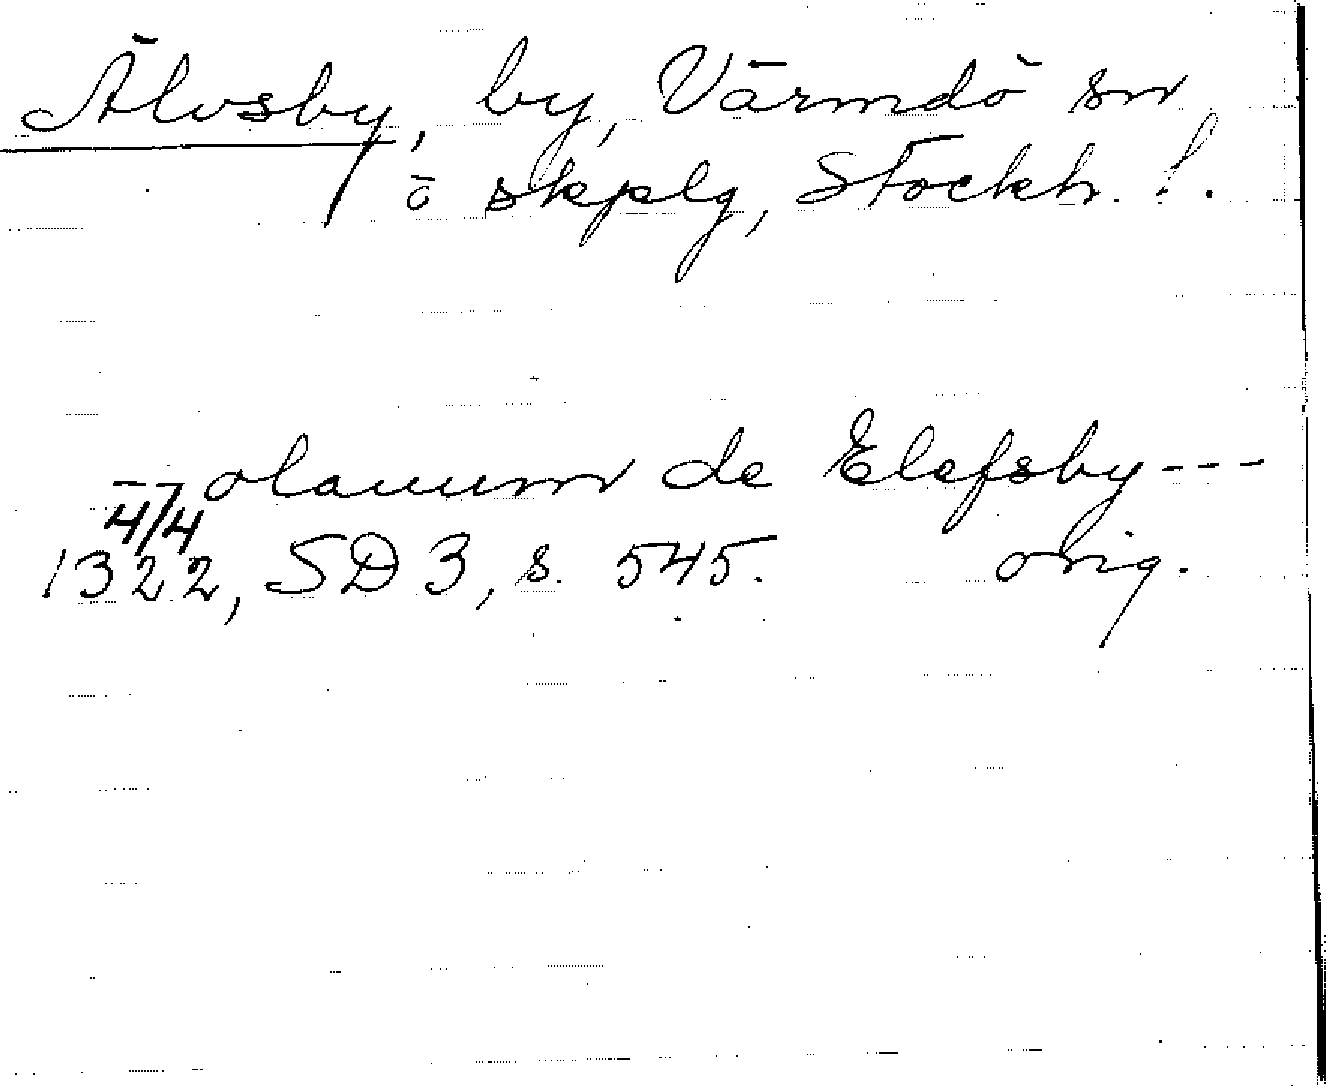 Älvsby, by, Värmdö sn
ö skplg, Stockh. l.
-- olauum de Elefsby ---
4/4
1322, SD 3, s. 545. orig.